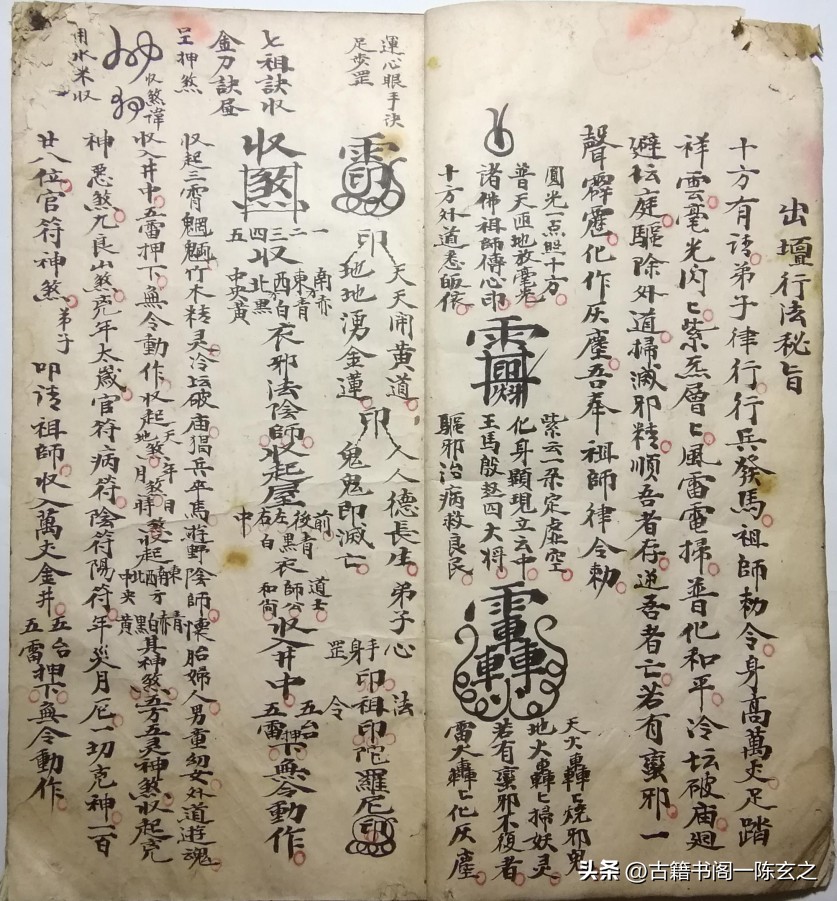 出壇行法秘旨
十方有請弟子律行行兵發馬祖師勅令身高萬丈足踏
祥雲毫光閃〻紫炁層〻風雷電掃普化和平冷坛破庙廻
避坛庭驅除外道掃滅邪精順吾者存逆吾者亡若有蠻邪一
聲霹靂化作灰塵吾奉祖師律令勅
圓光一点照十方
普天匝地放毫光
諸佛祖師傳心印
十方外道悉皈依
紫云一朶定虛空
化身顯現立云中
王馬殷趙四大将
驅邪治病救良民
天火轟〻燒邪鬼
地火轟〻掃妖灵
若有蠻邪不復者
雷火轟〻化灰塵
運心眼手決
足步罡
印
天天闹黄道
地地湧金蓮
印
人人德長生
鬼鬼即滅亡
弟子
心
手
身
罡
法
令
印祖印陀羅尼印
七祖訣收
金刀訣昼
呈押煞
收煞
一二三四五
收
南赤
東青
西白
北黑
中央黃
衣邪法陰師收起屋
前後左右中
青黑白
衣
道士
師公
和尚
收入井中
五台
五雷
押下無令動作
收煞諱
用水米收
收起三霄魍魎竹木精灵冷坛破庙猖兵卒馬遊野陰師懐胎婦人男童幼女外道遊魂
收入井中五雷押下無令動作收起
天煞地煞年煞月煞日煞時煞
收起
東方
南方
酉方
北方
中央
青赤白黑黃
其神煞五方五灵神煞收起克
神惡煞九良山煞克年太歲官符病符陰符陽符年災月厄一切克神一百
廿八位官符神煞
弟子
叩請祖師收入萬丈金井
五台
五雷
押下無令動作
头条@古籍书阁一陈玄之